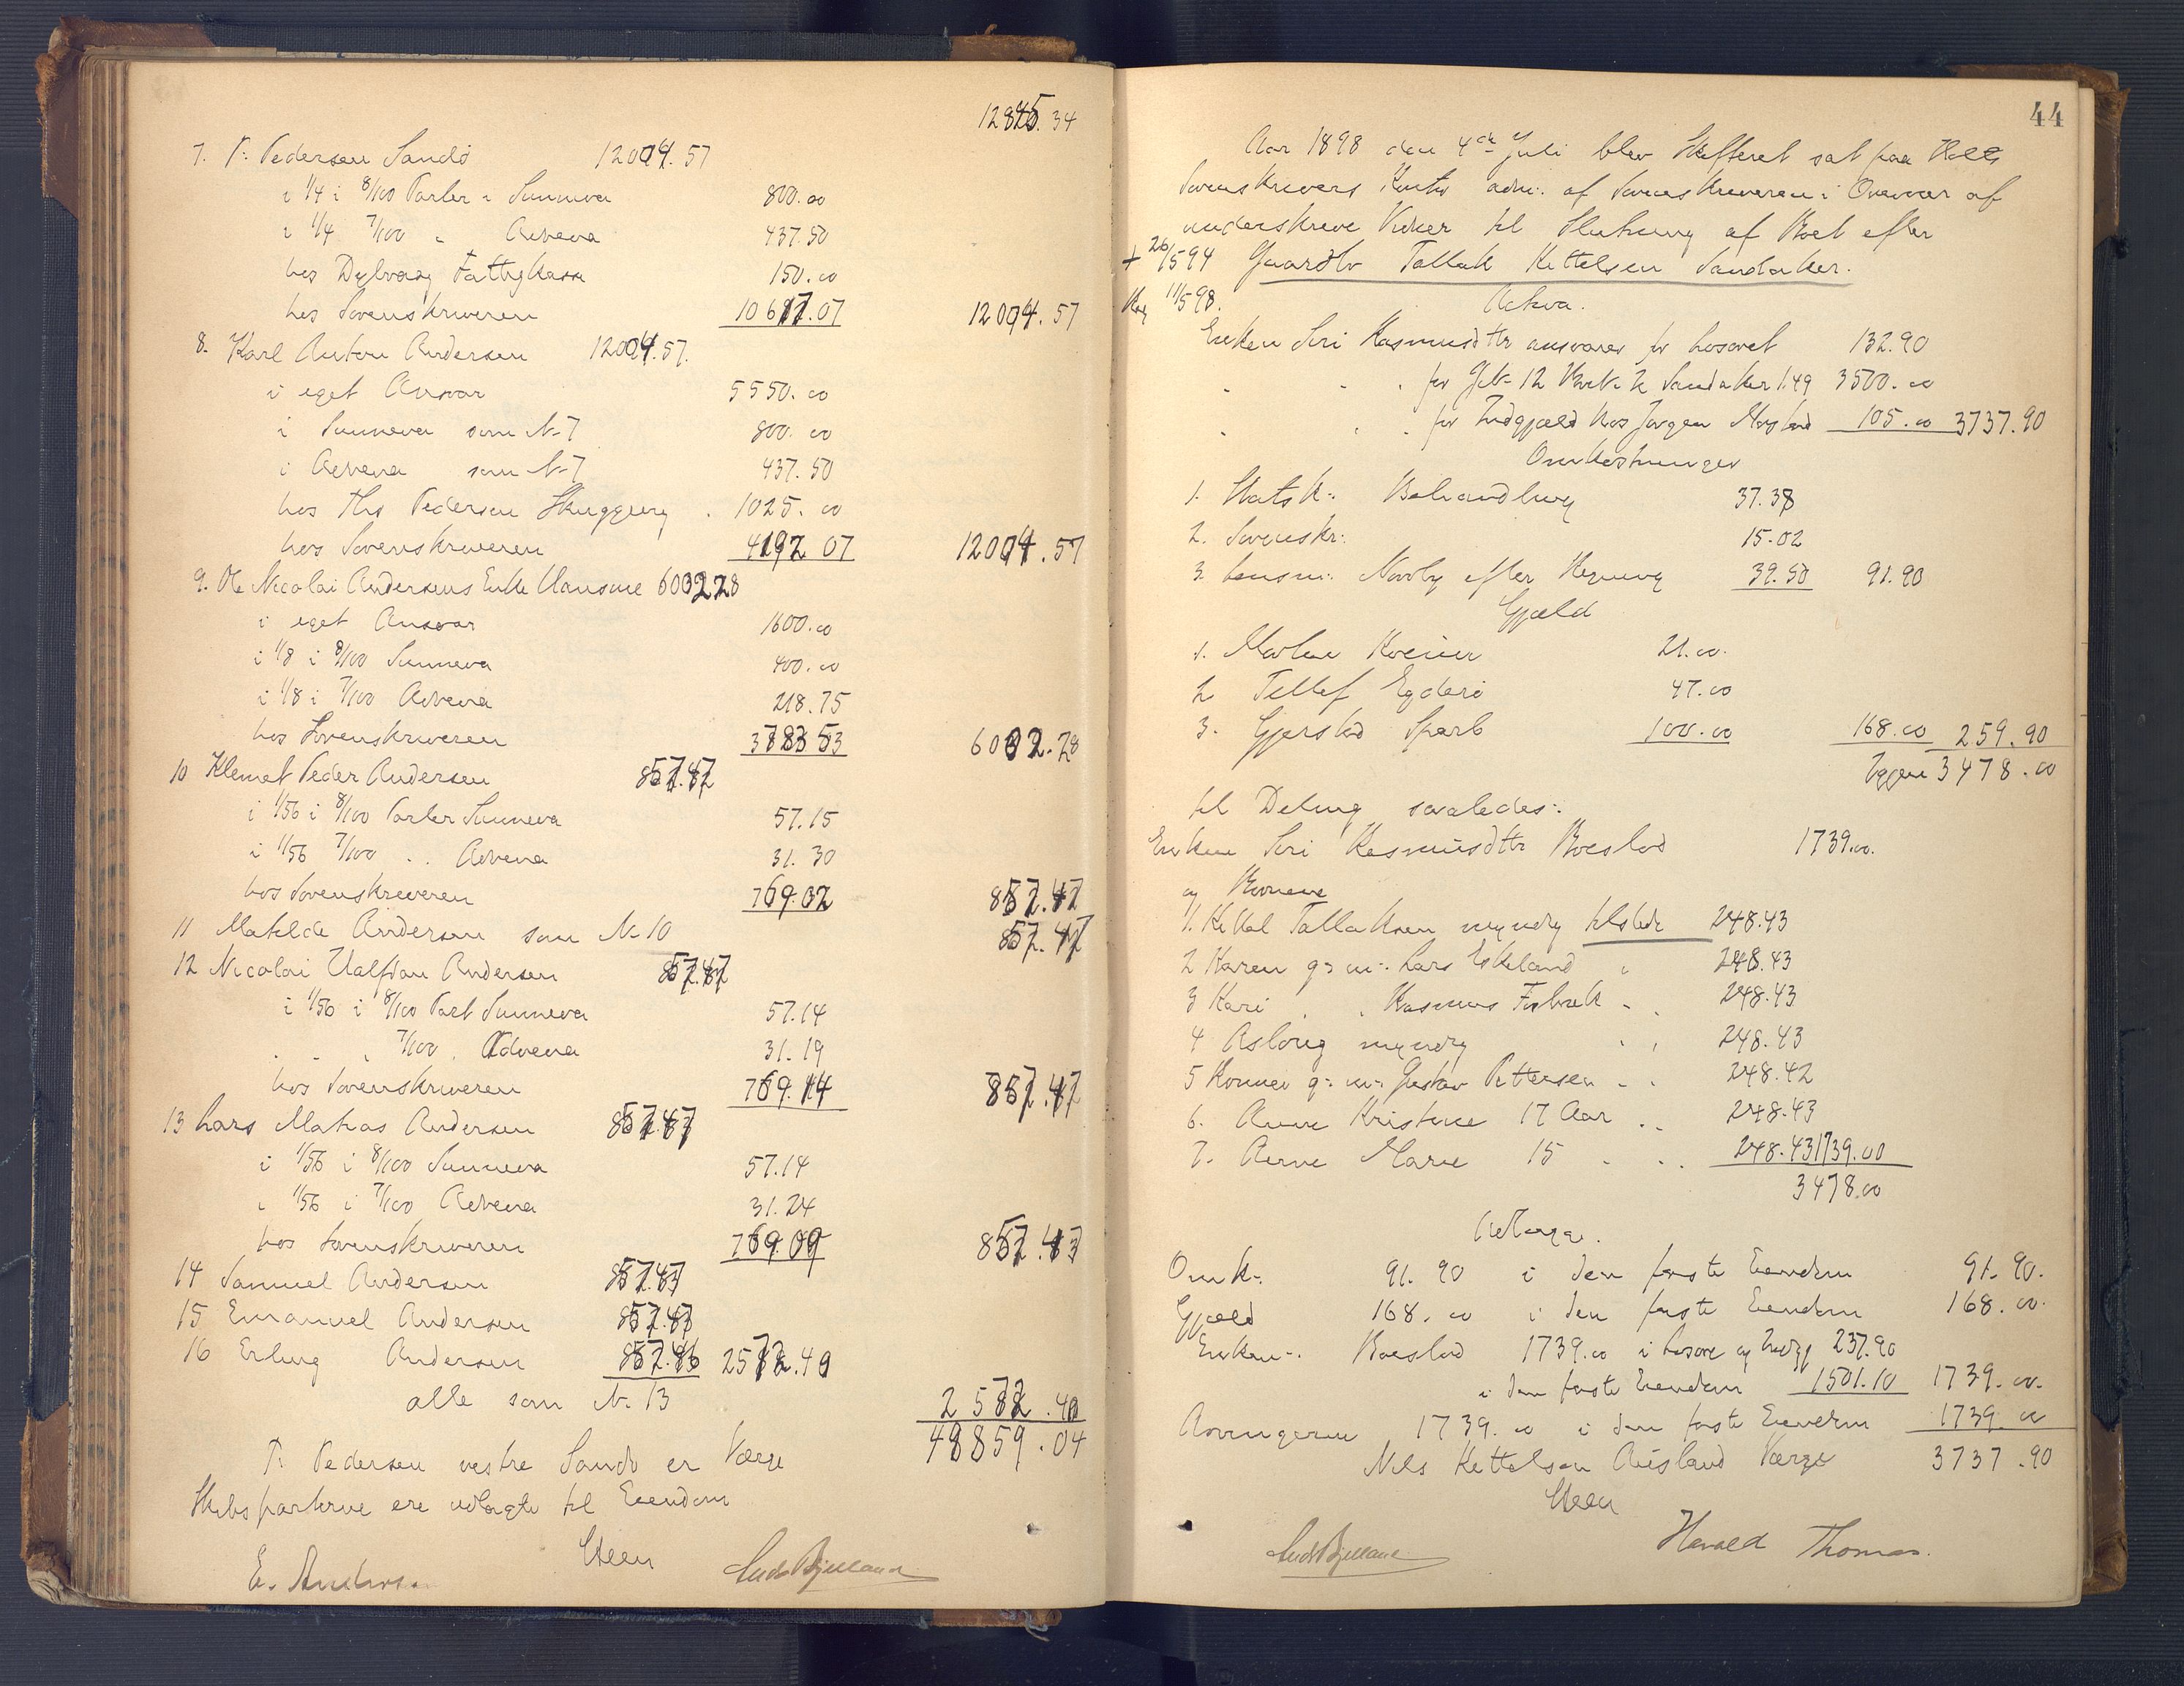 12845.34
7. P. Pedersen Sandø 12004.57
i 1/4 i 8/100 Parter i Sunneva 800.00
i 1/4 7/100 " Advena 437.50
hos Dybvaag Fattigkasse 150.00
hos Sorenskriveren 10617.07 12004.57
8. Karl Anton Andersen 12004.57.
i eget Ansvar 5550.00
i Sunneva som N-7 800.00
i Advena som N-7 437.50
hos Ths Pedersen 1025.00
hos Sorenskriveren 4192 07 12004.57
9. Ole Nicolai Andersens Enke Hansine 6002 28
i eget Ansvar 1600.00
i 1/8 i 8/100 Sunneva 400.00
i 1/8 i 7/100 Advena 218.75
hos Sorenskriveren 3783 53 6002.28
10 Klemet Peder Andersen 857.47
i 1/56 i 8/100 Parter Sunneva 57.15
i 1/56 7/100 . . Advena 31.30
hos Sorenskriveren 769.02 857.47
11 Matilde Andersen som N-10 857.47
12 Nicolai Halfdan Andersen 857.47
i 1/56 i 8/100 Part Sunneva 57.14
" " " 7/100 . Advena 31.19
hos Sorenskriveren 769.14 857.47
13 Lars Matias Andersen 857.47
i 1/56 i 8/100 Sunneva 57.14
i 1/56 i 7/100 Advena 31.24
hos Sorenskriveren 769.09 857.47
14 Samuel Andersen 857.47
15 Emanuel Andersen 857.47
16 Erling Andersen 857.46 2572.40
alle som N-13 2572.40
48859.04
P. Pedersen vestre Sandø er Værge
Skibsparterne ere udlagte til Eiendom
E. Andersen Steen
44
Aar 1898 den 4de Juli blev Skifteret sat paa Holts
Sorenskrivers Kontor adm: af Sorenskriveren i Overvær af
underskrevne Vidner til Slutning af Boet efter
+ 26/5 94 Gaardbr Tallak Kittelsen Sandaker.
Reg 11/5 98. Activa.
Enken Siri Rasmusdtr ansvarer for Løsøret 132.90
" " " for G.N- 12 Br.N- 2 Sandaker 1.49 3500.00
" " " for Indgjæld hos Jørgen 105.00 3737.90
Omkostninger
1. Statsk: Behandling 37.38
2. Sorenskr: 15.02
3. Lensm: Nævby efter Regning 39.50 91.90
Gjæld
1. 21.00.
2 Tellef Egdero 47.00
3. Gjerstad Sparb 100.00 168.00 259.90
Igjen 3478.00
til Deling saaledes:
Enken Siri Rasmusdtr Boeslod 1739.00.
og Børnene
1. Kittel Tallaksen myndig tilstede 248.43
2 Karen g: m: Lars Eskeland " 248.43
3 Kari . . Rasmus Fosbæk " . 248.43
4 Aslaug myndig " " 248.43
5 g: m: Gustav Pettersen " . 248.42
6. Anne Kristine 17 Aar . . 248.43
7. Anne Marie 15 " . . 248.43 1739.00
3478.00
Udlæg.
Omk: 91.90 i den faste Eiendom 91.90.
Gjæld 168.00 i den faste Eiendom 168.00.
Enken: Boeslod 1739.00 i Løsøre og Indgj 237.90
i den faste Eiendom 1501.10 1739.00.
Arvingerne 1739.00 i den faste Eiendom 1739.00
Nils Kittelsen Værge 3737.90
Steen
Harald Thomas.